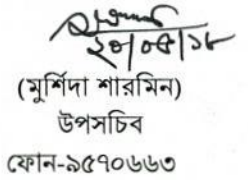 ২০/০৫/১৮
(মুর্শিদা শারমিন)
উপসচিব
ফোন-৯৫৭০৬৬৩